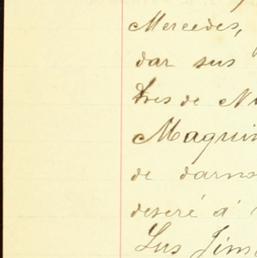 Mercedes,
dar sus
tres de
Maquin
de darns
deseré á
Lus Jim